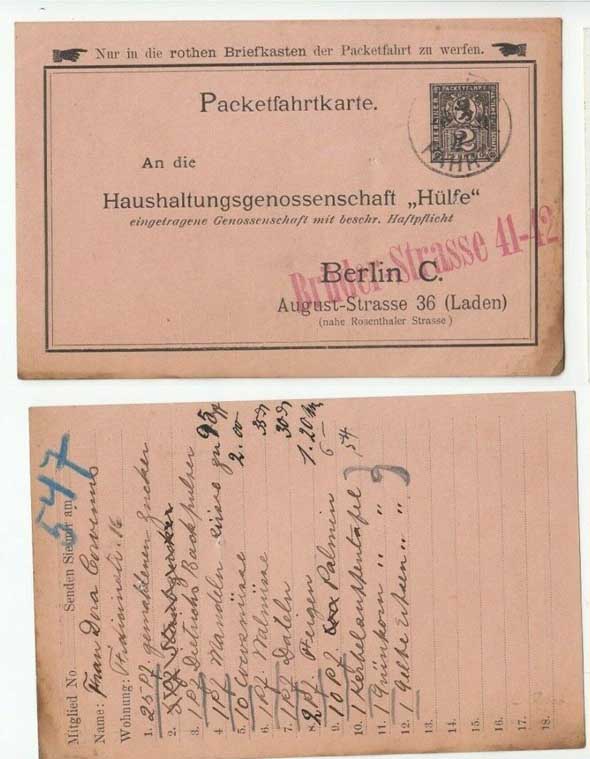 Nur in die rothen Briefkasten der Packetfahrt zu werfen.
Packetfahrtkarte.
PACKETFAHRT
2
An die
Haushaltungsgenossenschaft „Hülfe“
eingetragene Genossenschaft mit beschr. Haftpflicht
Brüder-Strasse 41-42
Berlin C.
August-Strasse 36 (Laden)
(nahe Rosenthaler Strasse)
547
Mitglied No. Senden Sie mir am
Name: Frau Dora
Wohnung: 16
1. 25 Pf. gemahlenen Zucker
2.
3. 1 Pf Dietrichs Backpulver
4. 1 Pf Mandeln süsse zu 95
5. 10 Cocosnüsse 2.00
6. 1 Pf Walnüsse 35
7. 1 Pf Dateln 30
8. 2 Pf Feigen 1.20
9. 10 Pf Palmin 6 54
10. 1
11. 1 Grünkorn " "
12. 1 Gelbe Erbsen " "
13.
14.
15.
16.
17.
18.